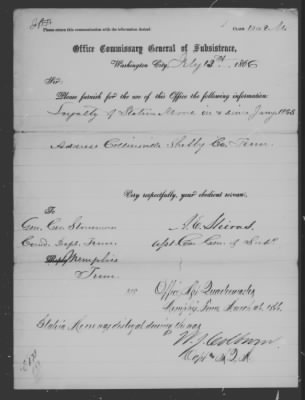 Please return this communication with the information desired.
Office Commissary General of Subsistence,
Washington City, July 12th, 1866
Sir:
Please furnish for the use of this Office the following information:
Loyalty of Statira Moore in & since Jany 1863
Address Collierville Shelby Co. Tenn.
Very respectfully, your obedient servant,
To
Gen. Geo Stoneman
Comd. Dept. Tenn
Memphis
Tenn
Office
Quartermaster
Memphis Tenn
Statira Moore was disloyal during the war
Capt &